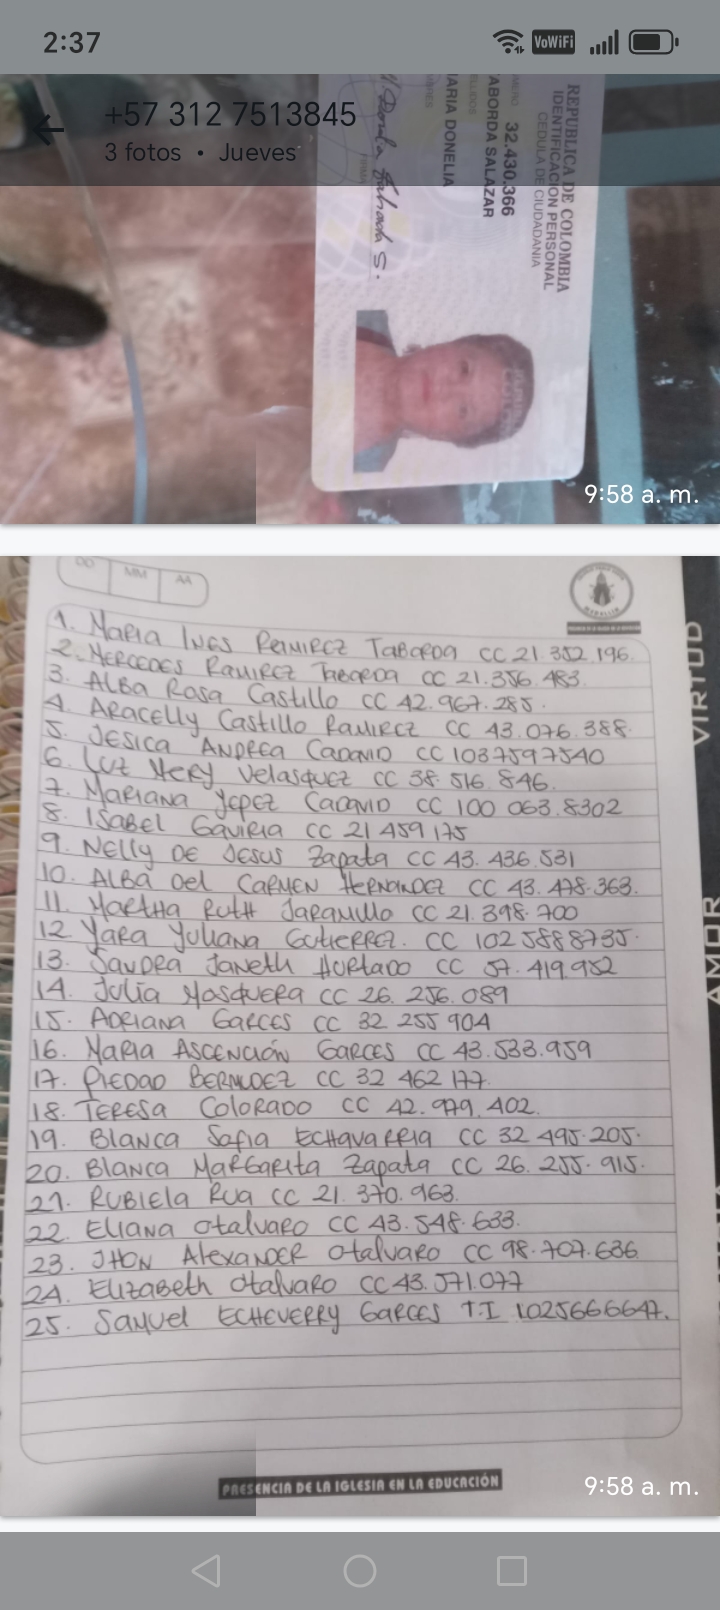 2:37
VoWiFi
+57 312 7513845
3 fotos • Jueves
REPUBLICA DE COLOMBIA
IDENTIFICACION PERSONAL
CEDULA DE CIUDADANIA
32.430.366
TABORDA SALAZAR
MARIA DONELIA
FIRMA
9:58 a. m.
DD MM AA
1. MARIA INES RAMIREZ TABORDA CC 21.352.196.
2. MERCEDES RAMIREZ TABORDA CC 21.356.483.
3. ALBA ROSA CASTILLO CC 42.967.285.
4. ARACELLY CASTILLO RAMIREZ CC 43.076.388.
5. JESICA ANDREA CADAVID CC 1037597540
6. LUZ MERY VELASQUEZ CC 38.516.846.
7. MARIANA YEPEZ CADAVID CC 100 063.8302
8. ISABEL GAVIRIA CC 21 459 175
9. NELLY DE JESUS ZAPATA CC 43.436.531
10. ALBA DEL CARMEN HERNANDEZ CC 43.478.363.
11. MARTHA RUTH JARAMILLO CC 21.398.700
12 YARA YULIANA GUTIERREZ. CC 102 5888735.
13. SANDRA JANETH HURTADO CC 57.419.952
14. JULIA MOSQUERA CC 26.256.089
15. ADRIANA GARCES CC 32 255 904
16. MARIA ASCENCIÓN GARCES CC 43.533.959
17. PIEDAD BERMUDEZ CC 32 462 177.
18. TERESA COLORADO CC 42.979.402.
19. BLANCA SOFIA ECHAVARRIA CC 32 495.205.
20. BLANCA MARGARITA ZAPATA CC 26.255.915.
21. RUBIELA RUA CC 21.370.963.
22. ELIANA OTALVARO CC 43.548.633.
23. JHON ALEXANDER OTALVARO CC 98.707.636
24. ELIZABETH OTALVARO CC 43.571.077
25. SAMUEL ECHEVERRY GARCES T.I 1025666647.
VIRTUD
AMOR
PRESENCIA DE LA IGLESIA EN LA EDUCACIÓN
9:58 a. m.